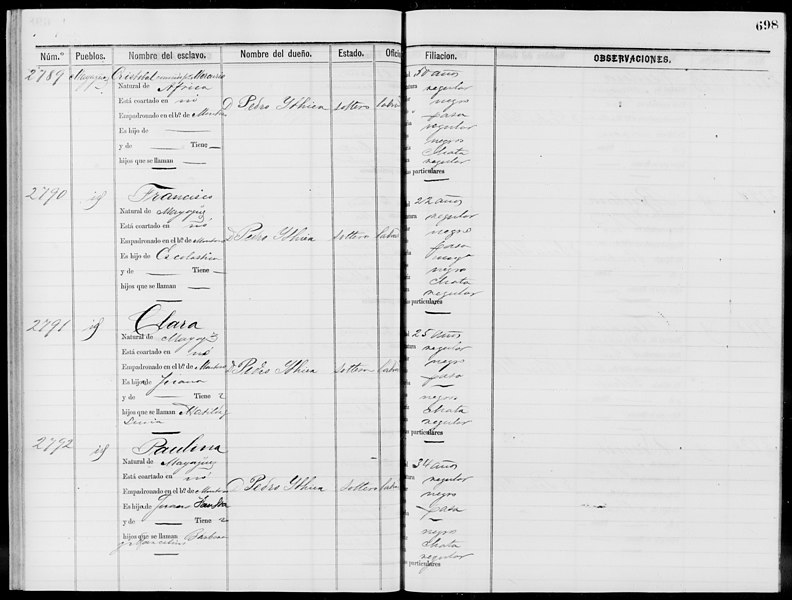 698
Núm.º Pueblos. Nombre del esclavo. Nombre del dueño. Estado. Ofici Filiacion. OBSERVACIONES.
2789 Mayagüez Cristobal
Natural de Africa
Está coartado en no
D Pedro Ythier soltero labra
Empadronado en el bº. de
Es hijo de
y de Tiene
hijos que se llaman
50 años
regular
negro
pasa
regular
negro
chata
regular
s particulares
2790 id Francisco
Natural de Mayagüez
Está coartado en no
Empadronado en el bº. de
D Pedro Ythier soltero labra
Es hijo de Escolastica
y de Tiene
hijos que se llaman
22 años
regular
negro
pasa
negro
chata
regular
s particulares
2791 id Clara
Natural de Mayagüez
Está coartado en no
Empadronado en el bº. de
D Pedro Ythier soltera labra
Es hija de Juana
y de Tiene 2
hijos que se llaman
25 años
regular
negro
pasa
negro
chata
regular
s particulares
2792 id Paulina
Natural de Mayagüez
Está coartado en no
Empadronado en el bº. de
D Pedro Ythier soltera labra
Es hija de
y de Tiene 2
hijos que se llaman Barbara
34 años
regular
negro
pasa
negro
chata
regular
s particulares